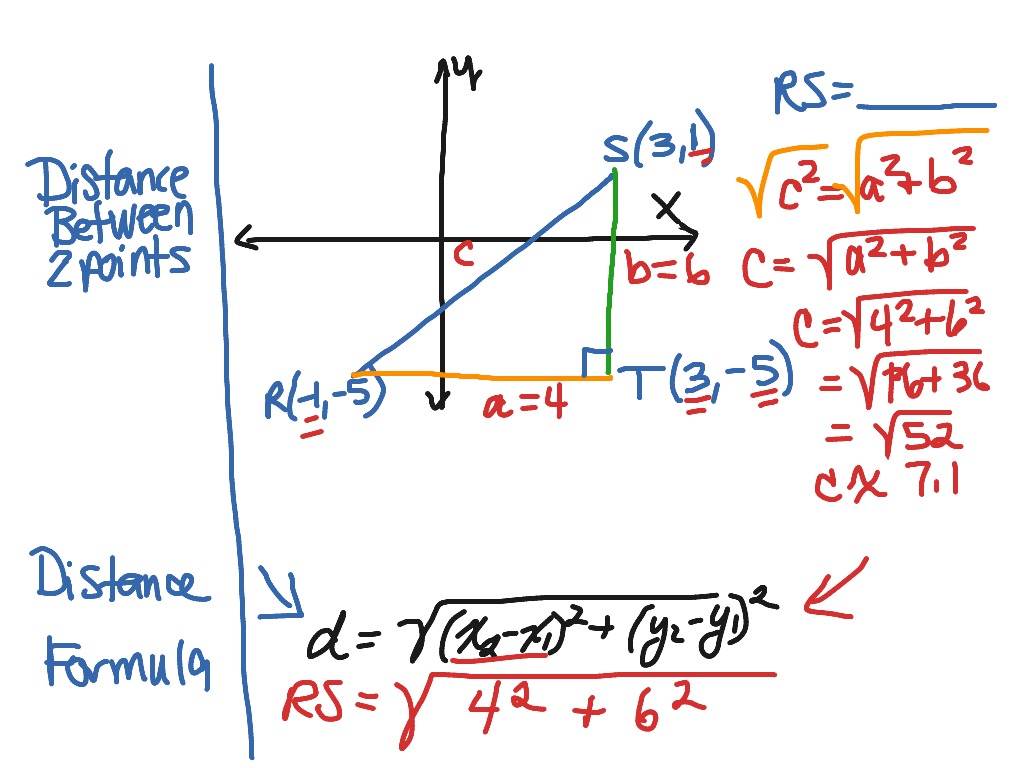 Distance
Between
2 points
y
x
S(3,1)
c
b=6
R(-1,-5)
a=4
T(3,-5)
RS=
√c² = √a²+b²
C=√a²+b²
C=√4²+6²
=√16+36
=√52
c≈ 7.1
Distance
Formula
d=√(x₂-x₁)²+(y₂-y₁)²
RS=√4² + 6²